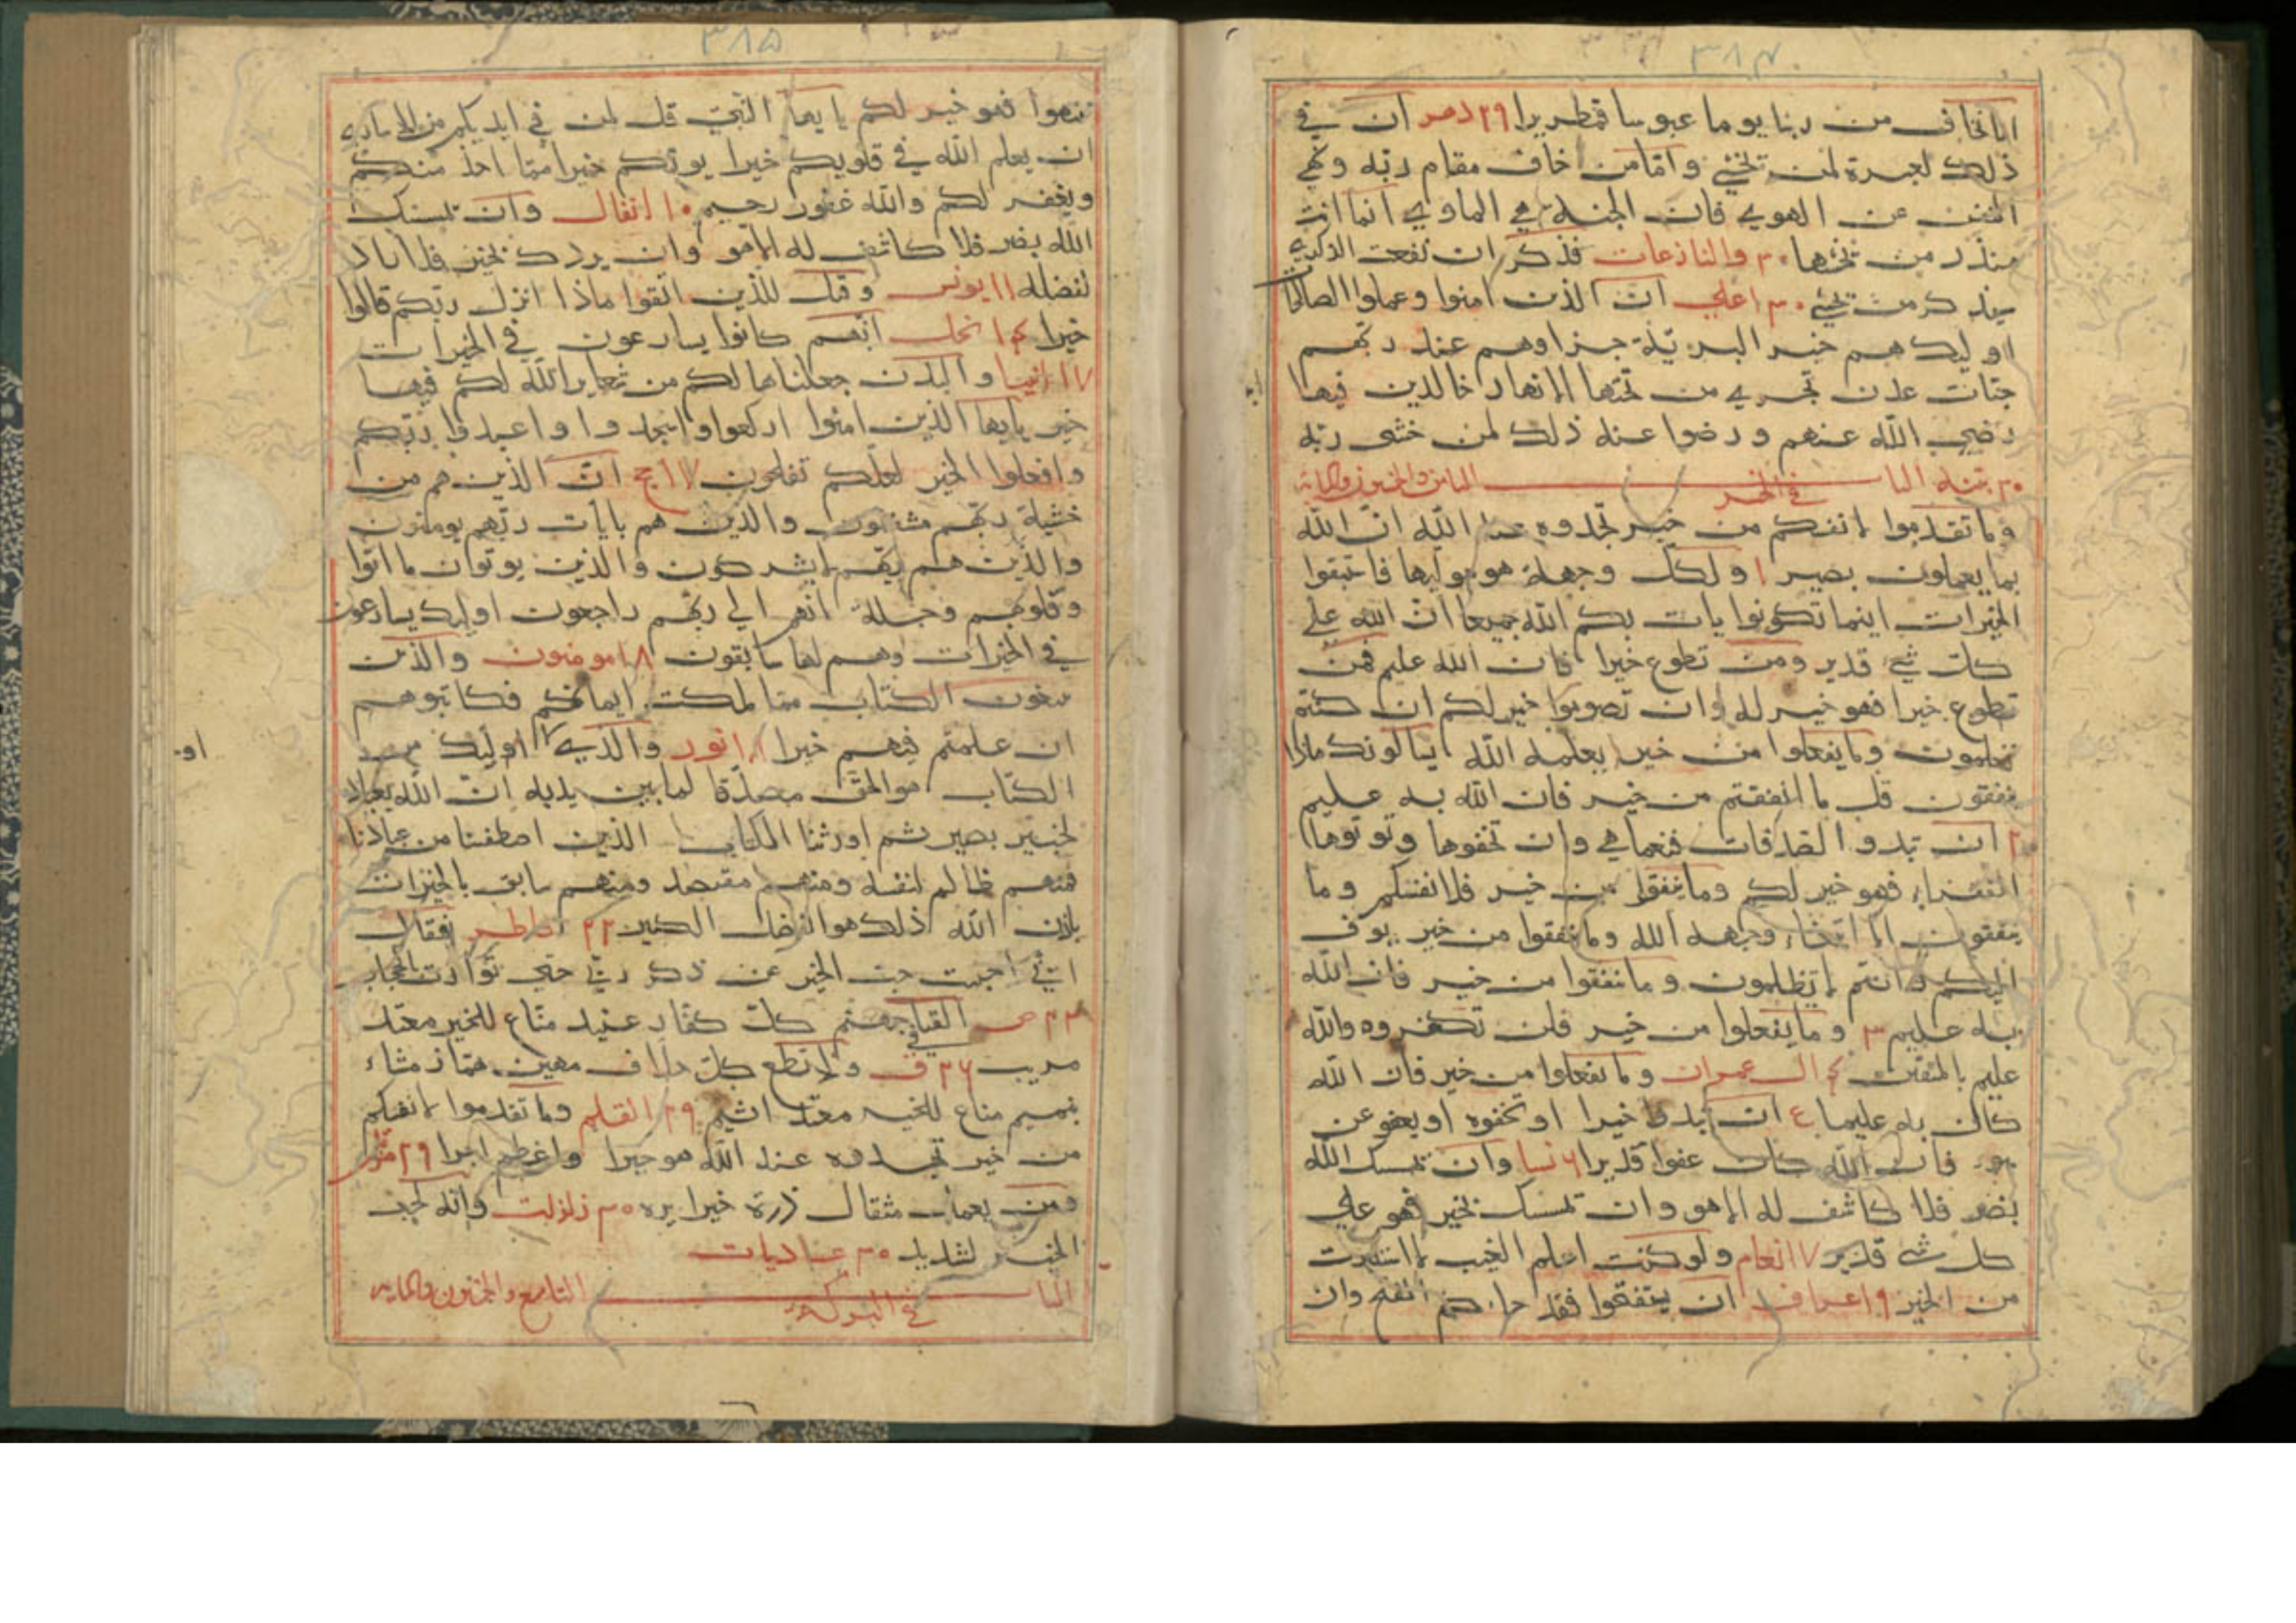 ٣٨٤
انا نخاف من ربنا يوما عبوسا قمطريرا ٢٩ دهر ان في
ذلك لعبرة لمن يخشي وامّا من خاف مقام ربّه ونهي
النفس عن الهوي فان الجنة هي الماوي انما انت
منذر من يخشها ٣٠ والنازعات فذكر ان نفعت الذكري
سيذكر من يخشي ٣٠ اعلي انّ الذين امنوا وعملوا الصالحات
اوليك هم خير البريّة جزاوهم عند ربّهم
جنّات عدن تجري من تحتها الانهار خالدين فيها
رضي الله عنهم و رضوا عنه ذلك لمن خشي ربّه
٣٠ بينه الباب الثامن والخمسون والمايه
في الخير
وما تقدموا لانفسكم من خير تجدوه عند الله انّ الله
بما يعملون بصير ١ ولكلّ وجهة هو موليها فاستبقوا
الخيرات اينما تكونوا يات بكم الله جميعا انّ الله علي
كلّ شي قدير ومن تطوع خيرا فان الله عليم فمن
تطوع خيرا فهو خير له وان تصوموا خير لكم ان كنتم
تعلمون وما يفعلوا من خير يعلمه الله يسالونك ماذا
ينفقون قل ما انفقتم من خير فان الله به عليم
٢ ان تبدو الصدقات فنعما هي وان تخفوها وتوتوها
الفقراء فهو خير لكم وما تنفقوا من خير فلانفسكم وما
تنفقون الا ابتغاء وجهه الله وما تنفقوا من خير يوف
اليكم وانتم لا تظلمون وما تنفقوا من خير فان الله
به عليم ٣ وما يفعلوا من خير فلن تكفروه والله
عليم بالمتقين ٤ ال عمران وما تفعلوا من خير فان الله
كان به عليما ٤ ان تبدوا خيرا او تخفوه او يعفو عن
سو فان الله كان عفوا قديرا ٦ نسا وان يمسك الله
بضر فلا كاشف له الا هو وان يمسك بخير فهو علي
كل شي قدير ٧ انعام ولو كنت اعلم الغيب لا استكثرت
من الخير ٩ اعراف ان يستفتحوا فقد جاءكم الفتح وان
٣٨٥
تنتهوا فهو خير لكم يا يها النّبيّ قل لمن في ايديكم من الاساري
ان يعلم الله في قلوبكم خيرا يوتكم خيرا ممّا اخذ منكم
ويغفر لكم والله غفور رحيم ١٠ انفال وان يمسك
الله بضر فلا كاشف له الا هو وان يردك بخير فلا راد
لفضله ١١ يونس وقيل للذين اتقوا ماذا انزل ربّكم قالوا
خيرا ١٤ نحل انّهم كانوا يسارعون في الخيرات
١٧ انبيا والبدن جعلناها لكم من شعاير الله لكم فيها
خير يايها الذين امنوا اركعوا واسجدوا واعبدوا ربّكم
وافعلوا الخير لعلّكم تفلحون ١٧ حج انّ الذين هم من
خشية ربّهم مشفقون والذين هم بايات ربّهم يومنون
والذين هم بربّهم لا يشركون والذين يوتون ما اتوا
وقلوبهم وجلة انهم الي ربّهم راجعون اوليك يسارعون
في الخيرات وهم لها سابقون ١٨ مومنون والذين
يبتغون الكتاب ممّا ملكت ايمانكم فكاتبوهم
ان علمتم فيهم خيرا ١٨ نور والذي اوليك من
او
الكتاب هو الحقّ مصدّقا لما بين يديه انّ الله بعباده
لخبير بصير ثم اورثنا الكتاب الذين اصطفينا من عبادنا
فمنهم ظالم لنفسه ومنهم مقتصد ومنهم سابق بالخيرات
باذن الله ذلك هو الفضل الكبير ٢٢ فاطر فقال
انّي احببت حب الخير عن ذكر ربّي حتي توارت بالحجاب
٢٣ ص القيا في جهنم كلّ كفّار عنيد منّاع للخير معتد
مريب ٢٦ ق ولا تطع كلّ حلاف مهين همّاز مشاء
بنميم مناع للخير معتد اثيم ٢٩ القلم وما تقدموا لانفسكم
من خير تجدوه عند الله هو خيرا واعظم اجرا ٢٩ مزمل
ومن يعمل مثقال ذرة خيرا يره ٣٠ زلزلت وانه لحب
الخير لشديد ٣٠ عاديات
الباب التاسع والخمسون والمايه
في البركة